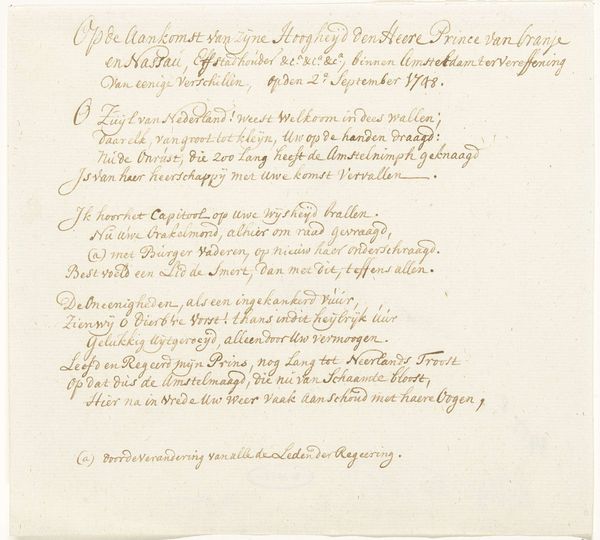 Op de Aankomst van Zyne Hoogheyd den Heere Prince van Oranje
en Nassau, Erfstadhouder &c.ª &c.ª &c.ª, binnen Amsteldam ter vereffening
van eenige Verschillen, op den 2.ᵉ September 1748.
O Zuyl van Nederland! weest Welkoom in dees wallen;
Daar elk, van groot tot kleyn, Uw op de handen draagd:
Nu de Onrust, die zoo Lang heeft de Amstelnimph geknaagd
Is van haer heerschappy met Uwe komst Vervallen.
Ik hoor het Capitool op Uwe Wysheyd brallen.
Nu Uwe Orakelmond, alhier om raad gevraagd,
(a) met Burger Vaderen, op nieuw haer onderschraagd.
Best voeld een Lid de Smert, dan met dit, teffens allen.
De Oneenigheden, als een ingekankerd vuur,
Zien wy ô Dierb're Vorst! thans in dit heylryk uur
Gelukkig uytgeroeyd, alleen door Uw vermoogen.
Leefd en Regeerd mijn Prins, nog Lang tot Neerlands Troost
Op dat dus de Amstelmaagd, die nu van Schaamte bloost,
Hier na in Vrede Uw Weer vaak Aanschoud met haere Oogen,
(a) Door de verandering van alle de Leden der Regeering.